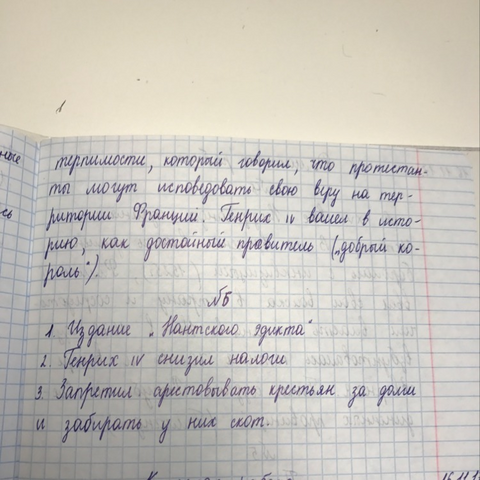 ные
сь
терпимости, который говорил, что протестан-
ты могут исповедовать свою веру на тер-
ритории Франции. Генрих IV вошел в исто-
рию, как достойный правитель („добрый ко-
роль").
№5
1. Издание „Нантского эдикта"
2. Генрих IV снизил налоги
3. Запретил арестовывать крестьян за долги
и забирать у них скот.